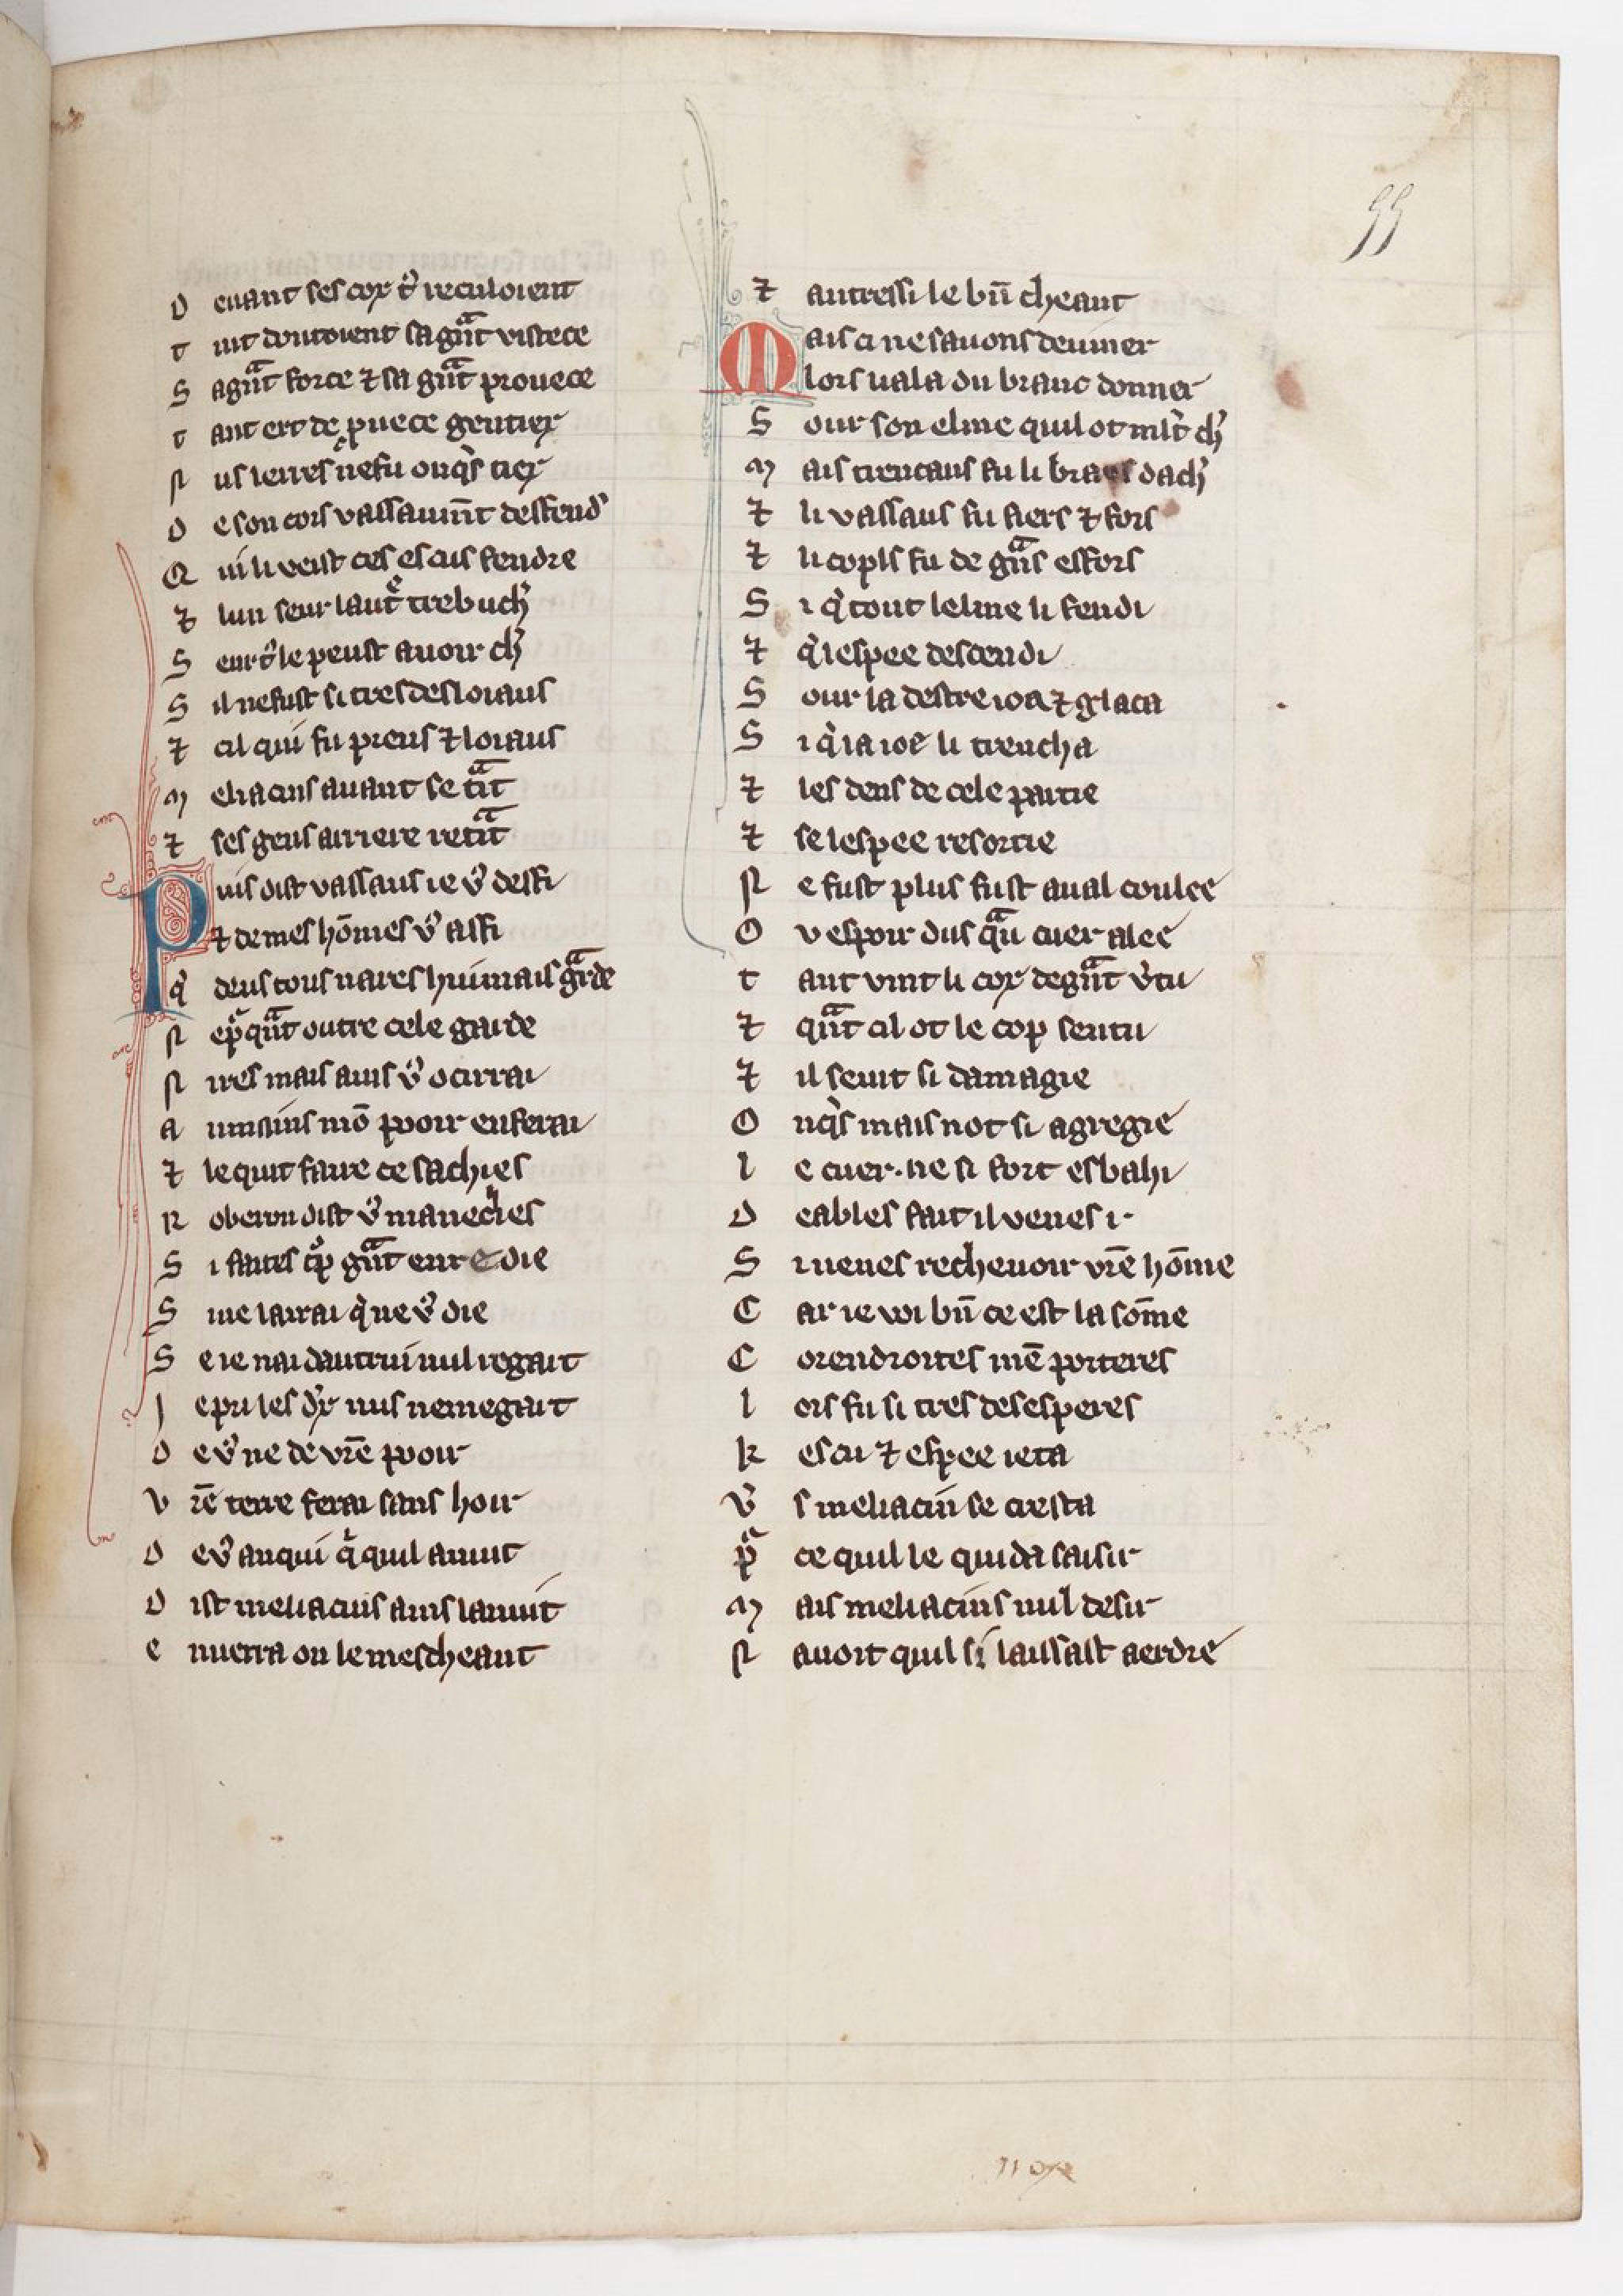 55
D euant ses cox t᷒ reculoient
t uit doutoient sa gñt vistece
S a gñt force ⁊ sa gñt prouece
t ant ert de p̱uece gentiex
N us lerres ne fu onq̃s tiex
D e son cors vassaumñt deffend᷒
Q ui li veist ces escus fendre
⁊ lun seur laut᷒ trebuch᷒
S eur t᷒ le peust auoir ch᷒
S il ne fust si tres desloiaus
⁊ cil qui fu preus ⁊ loiaus
M eliacins auant se t̃it
⁊ ses gens arriere ret̃it
P uis dist vassaus ie v᷒ deffi
⁊ de mes hōmes v᷒ affi
q̃ deus tous nares huimais g̃rde
N e p̱ q̃nt outre cele garde
N ires mais ains v᷒ ocirrai
A u mains mō pooir en ferai
⁊ le quit faire ce sachies
R oberon dist v᷒ manecies
S i faites cõp g̃nt enresdie
S ine lairai q̃ ne v᷒ die
S e ie nai dautrui nul regart
J e pri les dx nus ne me gart
D e v᷒ ne de vr̄e pooir
V r̄e terre ferai sans hoir
D e v᷒ auqui q̃ quil auiut
D ist meliacins ains lanuit
E nuerra on le mescheant
⁊ autressi le bn̄ cheant
M ais ci ne sauons deuiner
lors uala du branc donner
S our son elme quil ot mlt̃ ch᷒
M ais trencans fu li brans dach᷒
⁊ li vassaus fu fiers ⁊ fors
⁊ li cops fu de g̃ns effors
S i q̃ tout lelme li fendi
⁊ q̃ lespee descendi
S our la destre ioe ⁊ glaca
S i q̃ la ioe li trencha
⁊ les dens de cele partie
⁊ se lespee resortie
N e fust plus fust aual coulee
O v espoir dus q̃u cuer alee
t ant vint li cox de g̃nt v᷒tu
⁊ q̃nt cil ot le cop sentu
⁊ il senit si damagie
O nq̃s mais not si agregie
l e cuer · ne si fort esbahi
D eables fait il venes i ·
S i uenes rechevoir vr̄e hōme
C ar ie voi bn̄ ce est la sōme
C orendroites mē porteres
l ors fu si tres desesperes
K escu ⁊ espee ieta
V᷒ s meliacin se cresta
p̱ ce quil le quida saisir
M ais meliacins nul desir
N auoit quil si laissast aerdre